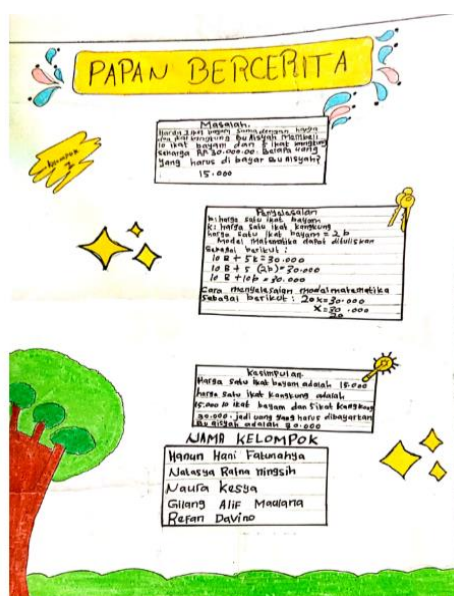 PAPAN BERCERITA
kelompok
Masalah.
Harga 1 ikat bayam sama dengan harga
dua ikat kangkung. Bu Aisyah membeli
10 ikat bayam dan 5 ikat kangkung
seharga RP 30.000.00. Berapa uang
yang harus di bayar Bu Aisyah?
15.000
Penyelesaian
b: harga satu ikat bayam
k: harga satu ikat kangkung
harga satu ikat bayam = 2 b
Model matematika dapat dituliskan
Sebagai berikut :
10 B + 5k = 30.000
10 B + 5 (2b) = 30.000
10 B + 10b = 30.000
Cara menyelesaian modal matematika
Sebagai berikut : 20x = 30.000
x = 30.000
20
Kesimpulan
Harga satu ikat bayam adalah 15.000
harga satu ikat kangkung adalah
15.000 10 ikat bayam dan 5 ikat kangkung
30.000. jadi uang yang harus dibayarkan
Bu aisyah adalah
NAMA KELOMPOK
Hanun Hani Fatunahya
Natasya Ratna ningsih
Naura Kesya
Gilang Alif Maulana
Refan Davino